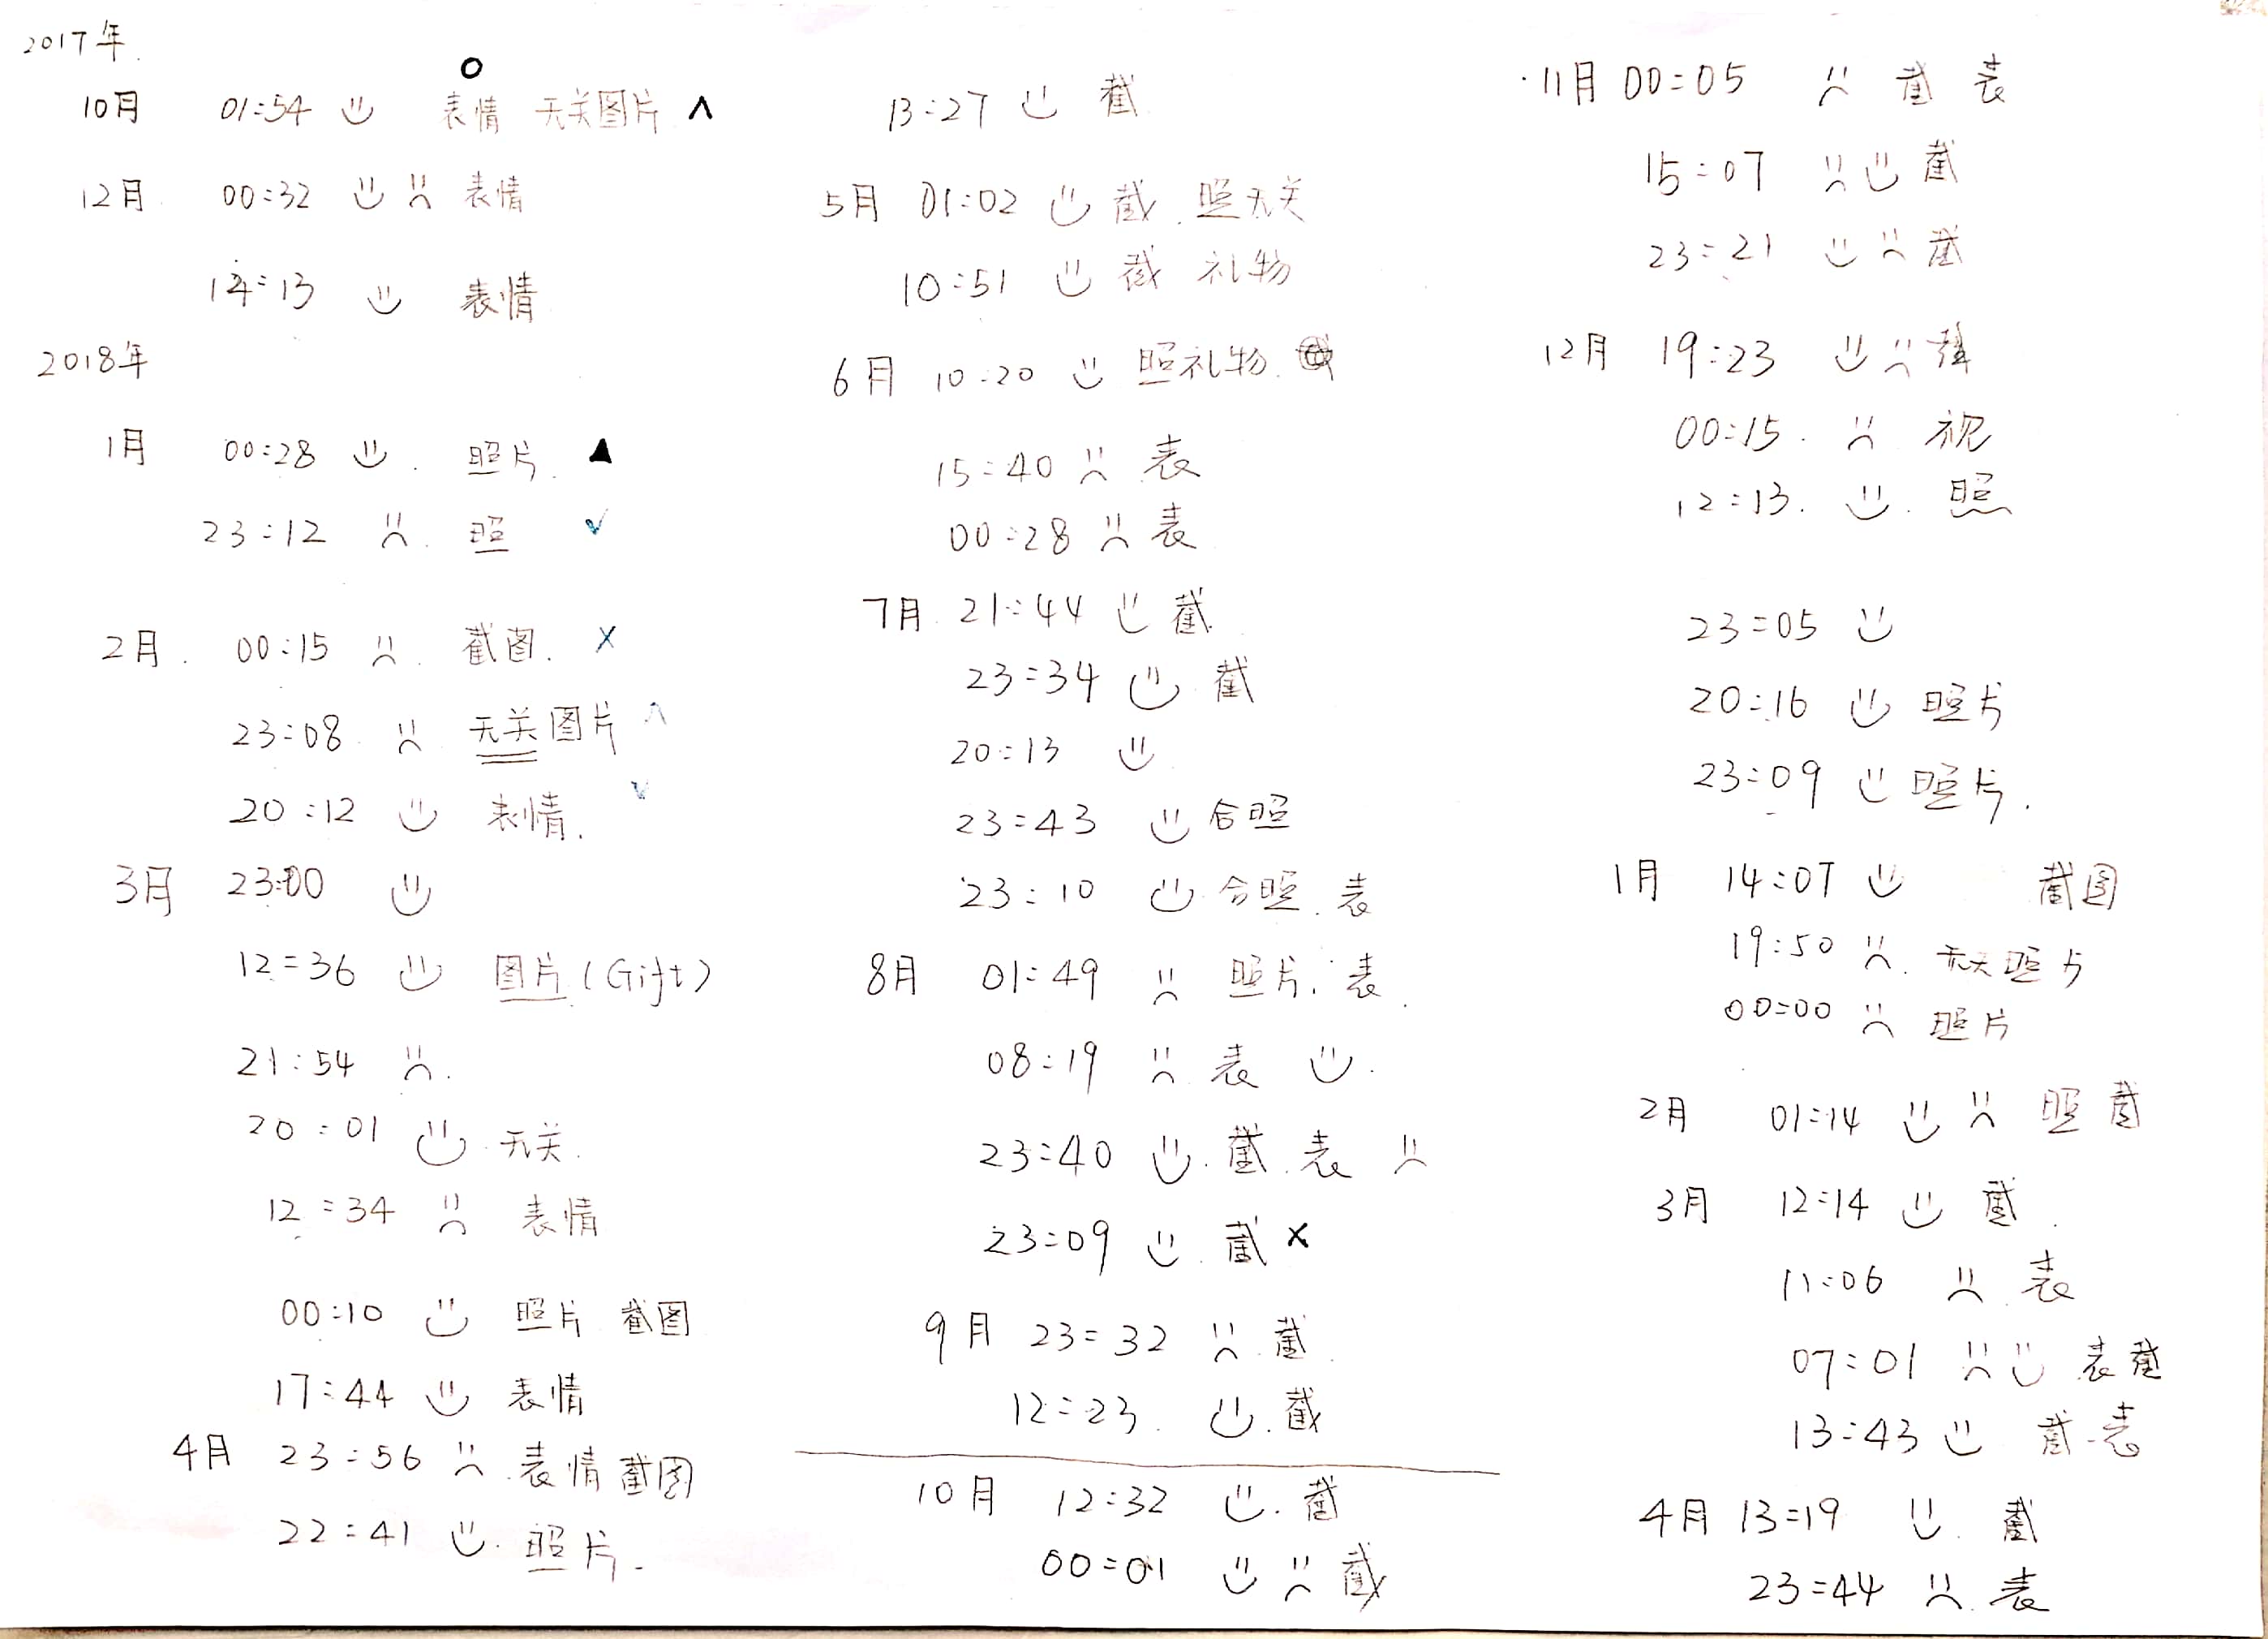 2017年
10月 01:54 表情 无关图片
12月 00:32 表情
14:13 表情
2018年
1月 00:28 照片
23:12 照
2月 00:15 截图
23:08 无关图片
20:12 表情
3月 23:00
12:36 图片(Gift)
21:54
20:01 无关
12:34 表情
00:10 照片 截图
17:44 表情
4月 23:56 表情 截图
22:41 照片
13:27 截
5月 01:02 截 照无关
10:51 截 礼物
6月 10:20 照礼物
15:40 表
00:28 表
7月 21:44 截
23:34 截
20:13
23:43 合照
23:10 合照 表
8月 01:49 照片 表
08:19 表
23:40 截 表
23:09 截
9月 23:32 截
12:23 截
10月 12:32 截
00:01 截
11月 00:05 截 表
15:07 截
23:21 截
12月 19:23
00:15 视
12:13 照
23:05
20:16 照片
23:09 照片
1月 14:07 截图
19:50 无关照片
00:00 照片
2月 01:14 照 截
3月 12:14 截
11:06 表
07:01 表截
13:43 截 表
4月 13:19 截
23:44 表